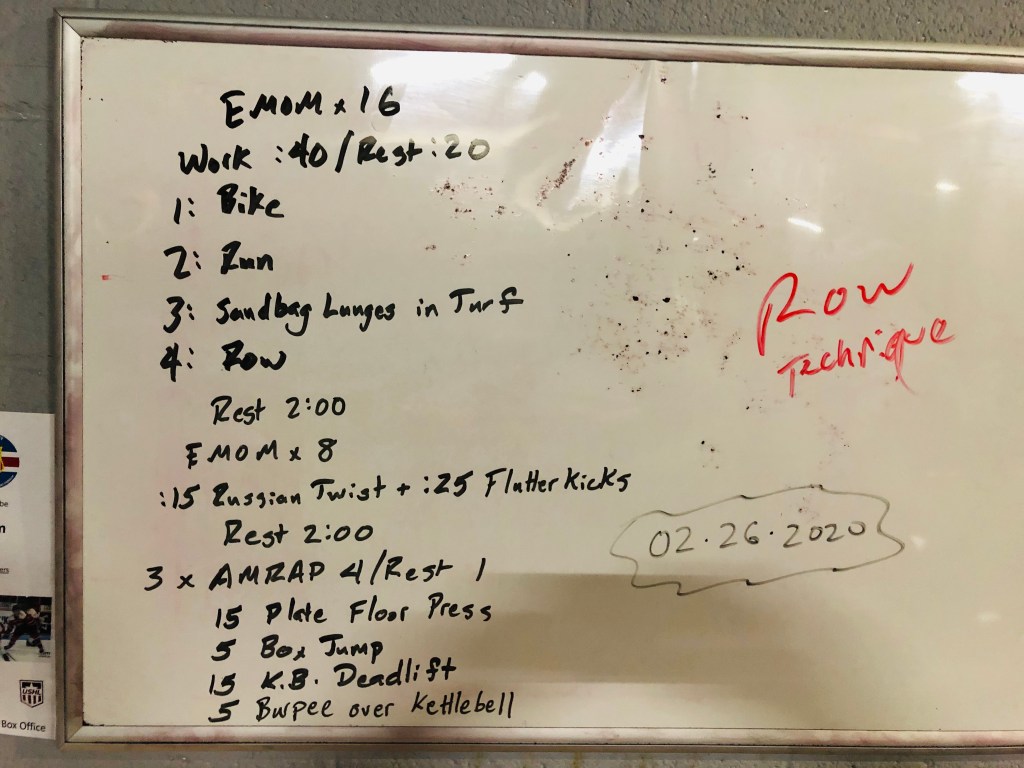 EMOM x 16
Work :40/Rest :20
1: Bike
2: Run
3: Sandbag Lunges in Turf
4: Row
Rest 2:00
EMOM x 8
:15 Russian Twist + :25 Flutter Kicks
Rest 2:00
3 x AMRAP 4/Rest 1
15 Plate Floor Press
5 Box Jump
15 K.B. Deadlift
5 Burpee over Kettlebell
Row
Technique
02.26.2020
USHL
Box Office